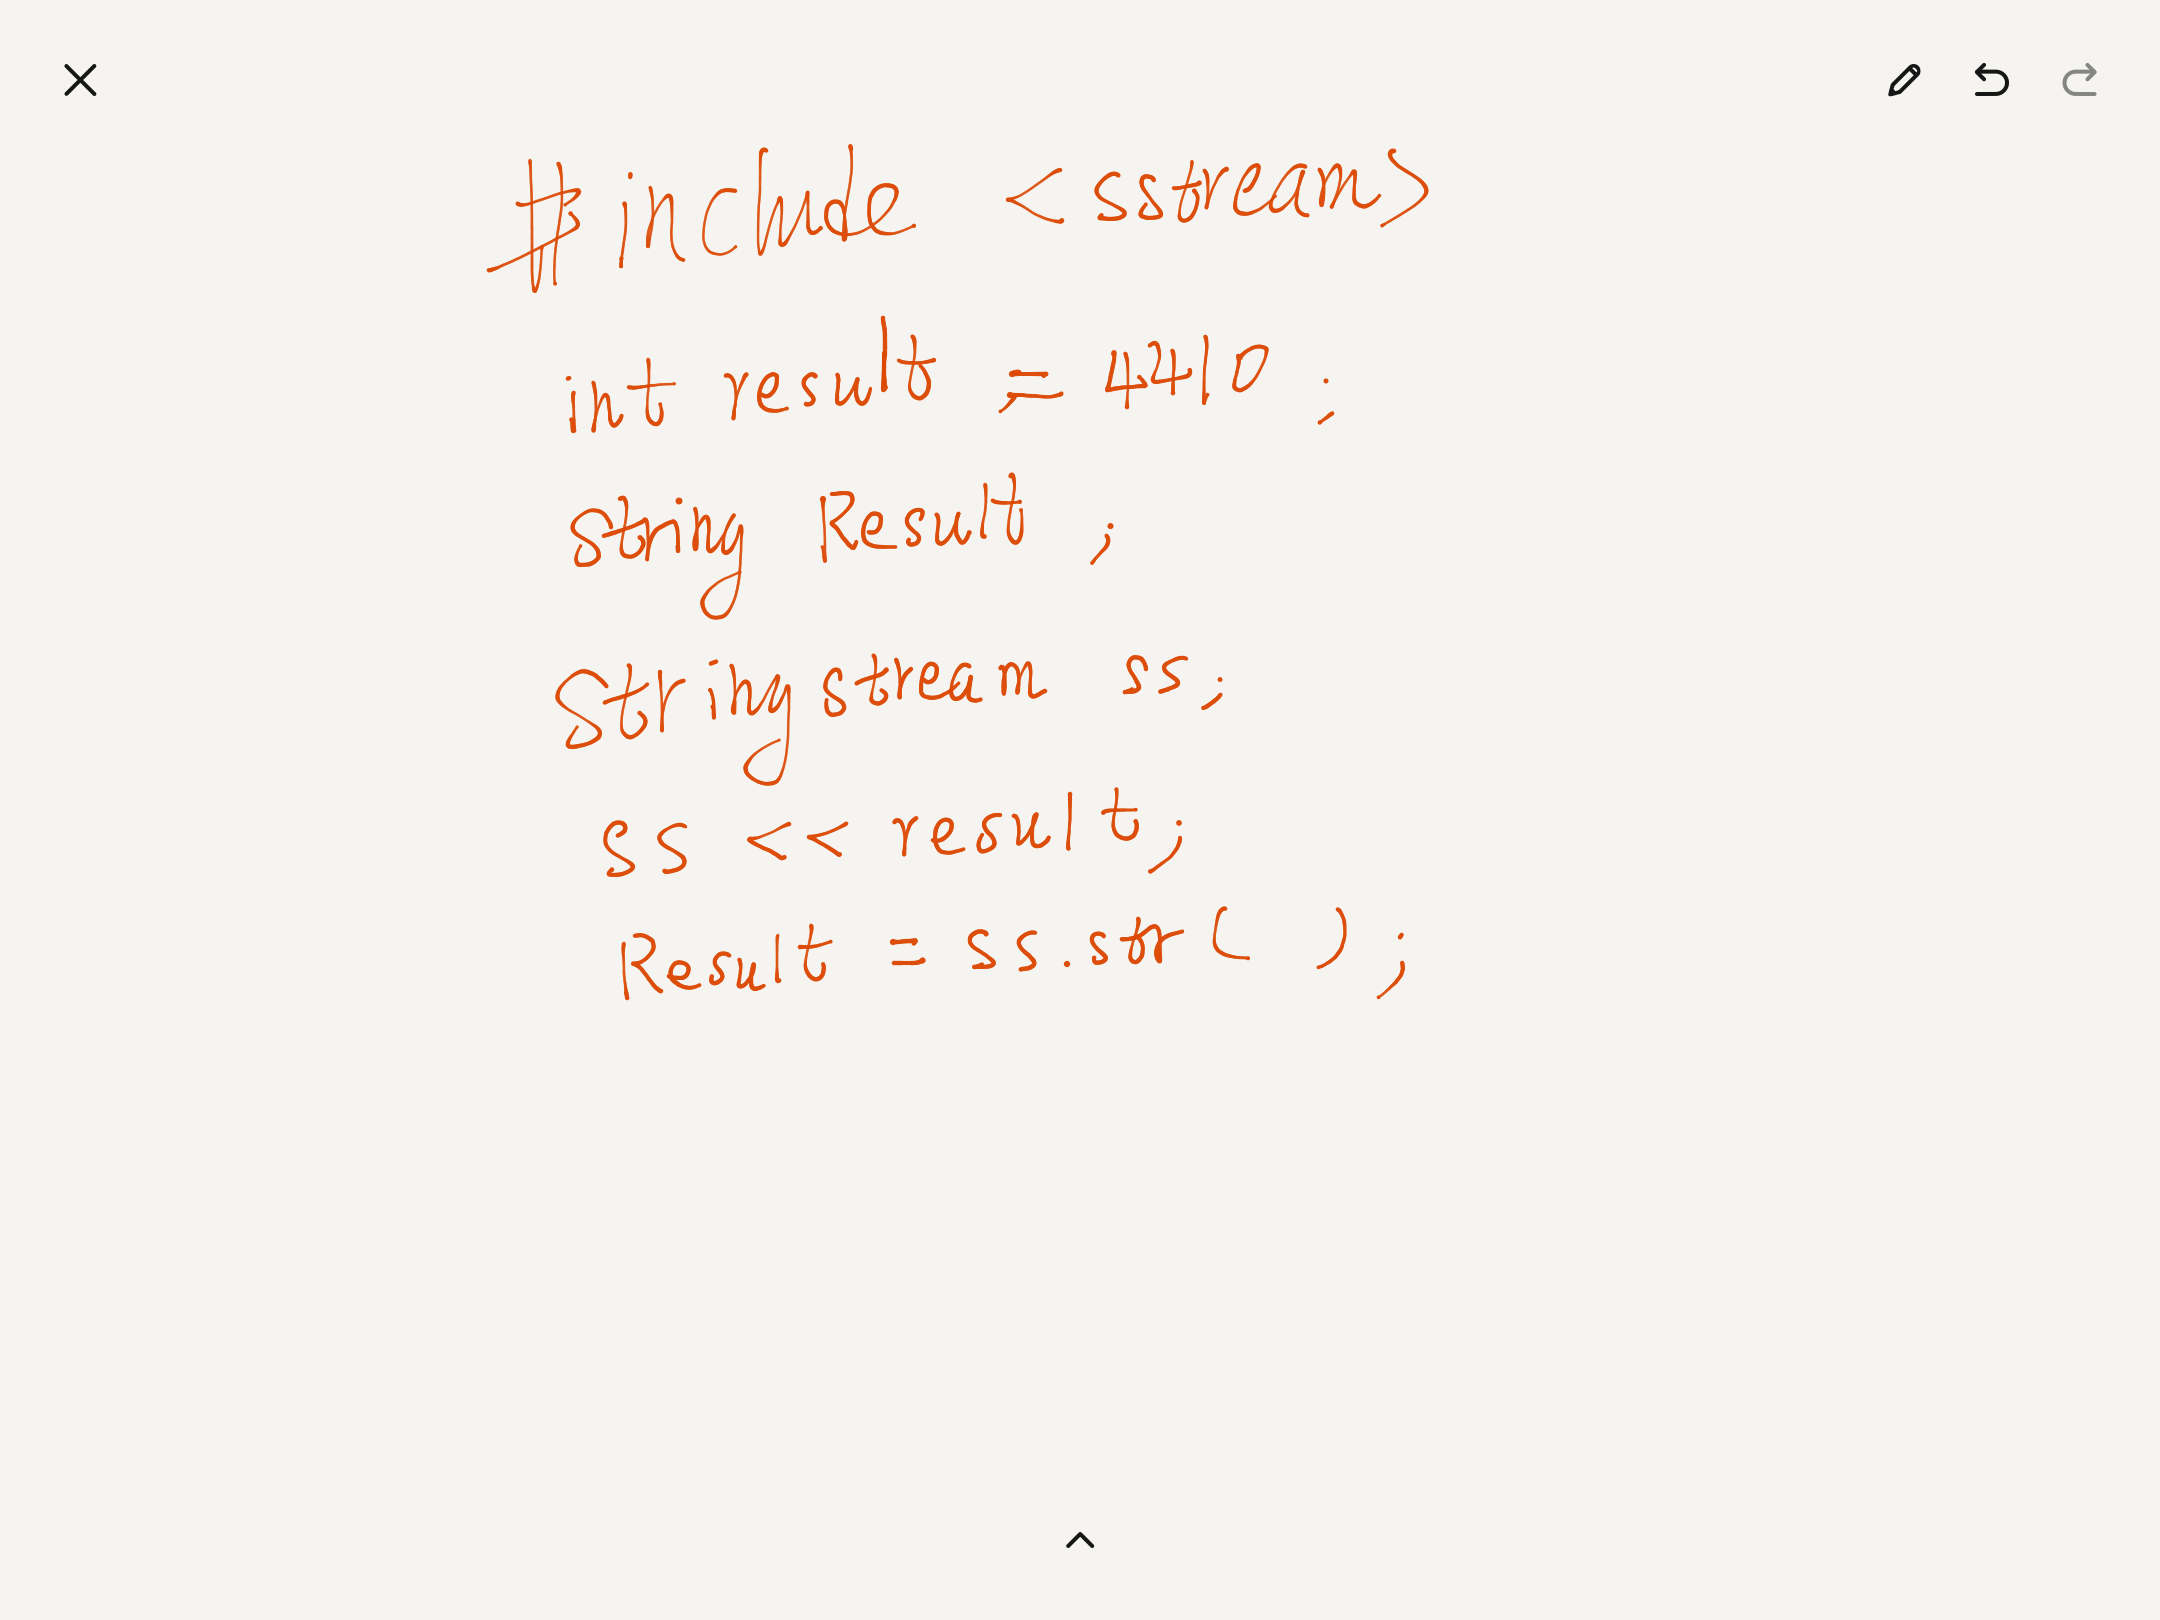 #include <sstream>
int result = 4410;
string Result;
Stringstream ss;
ss << result;
Result = ss.str( );